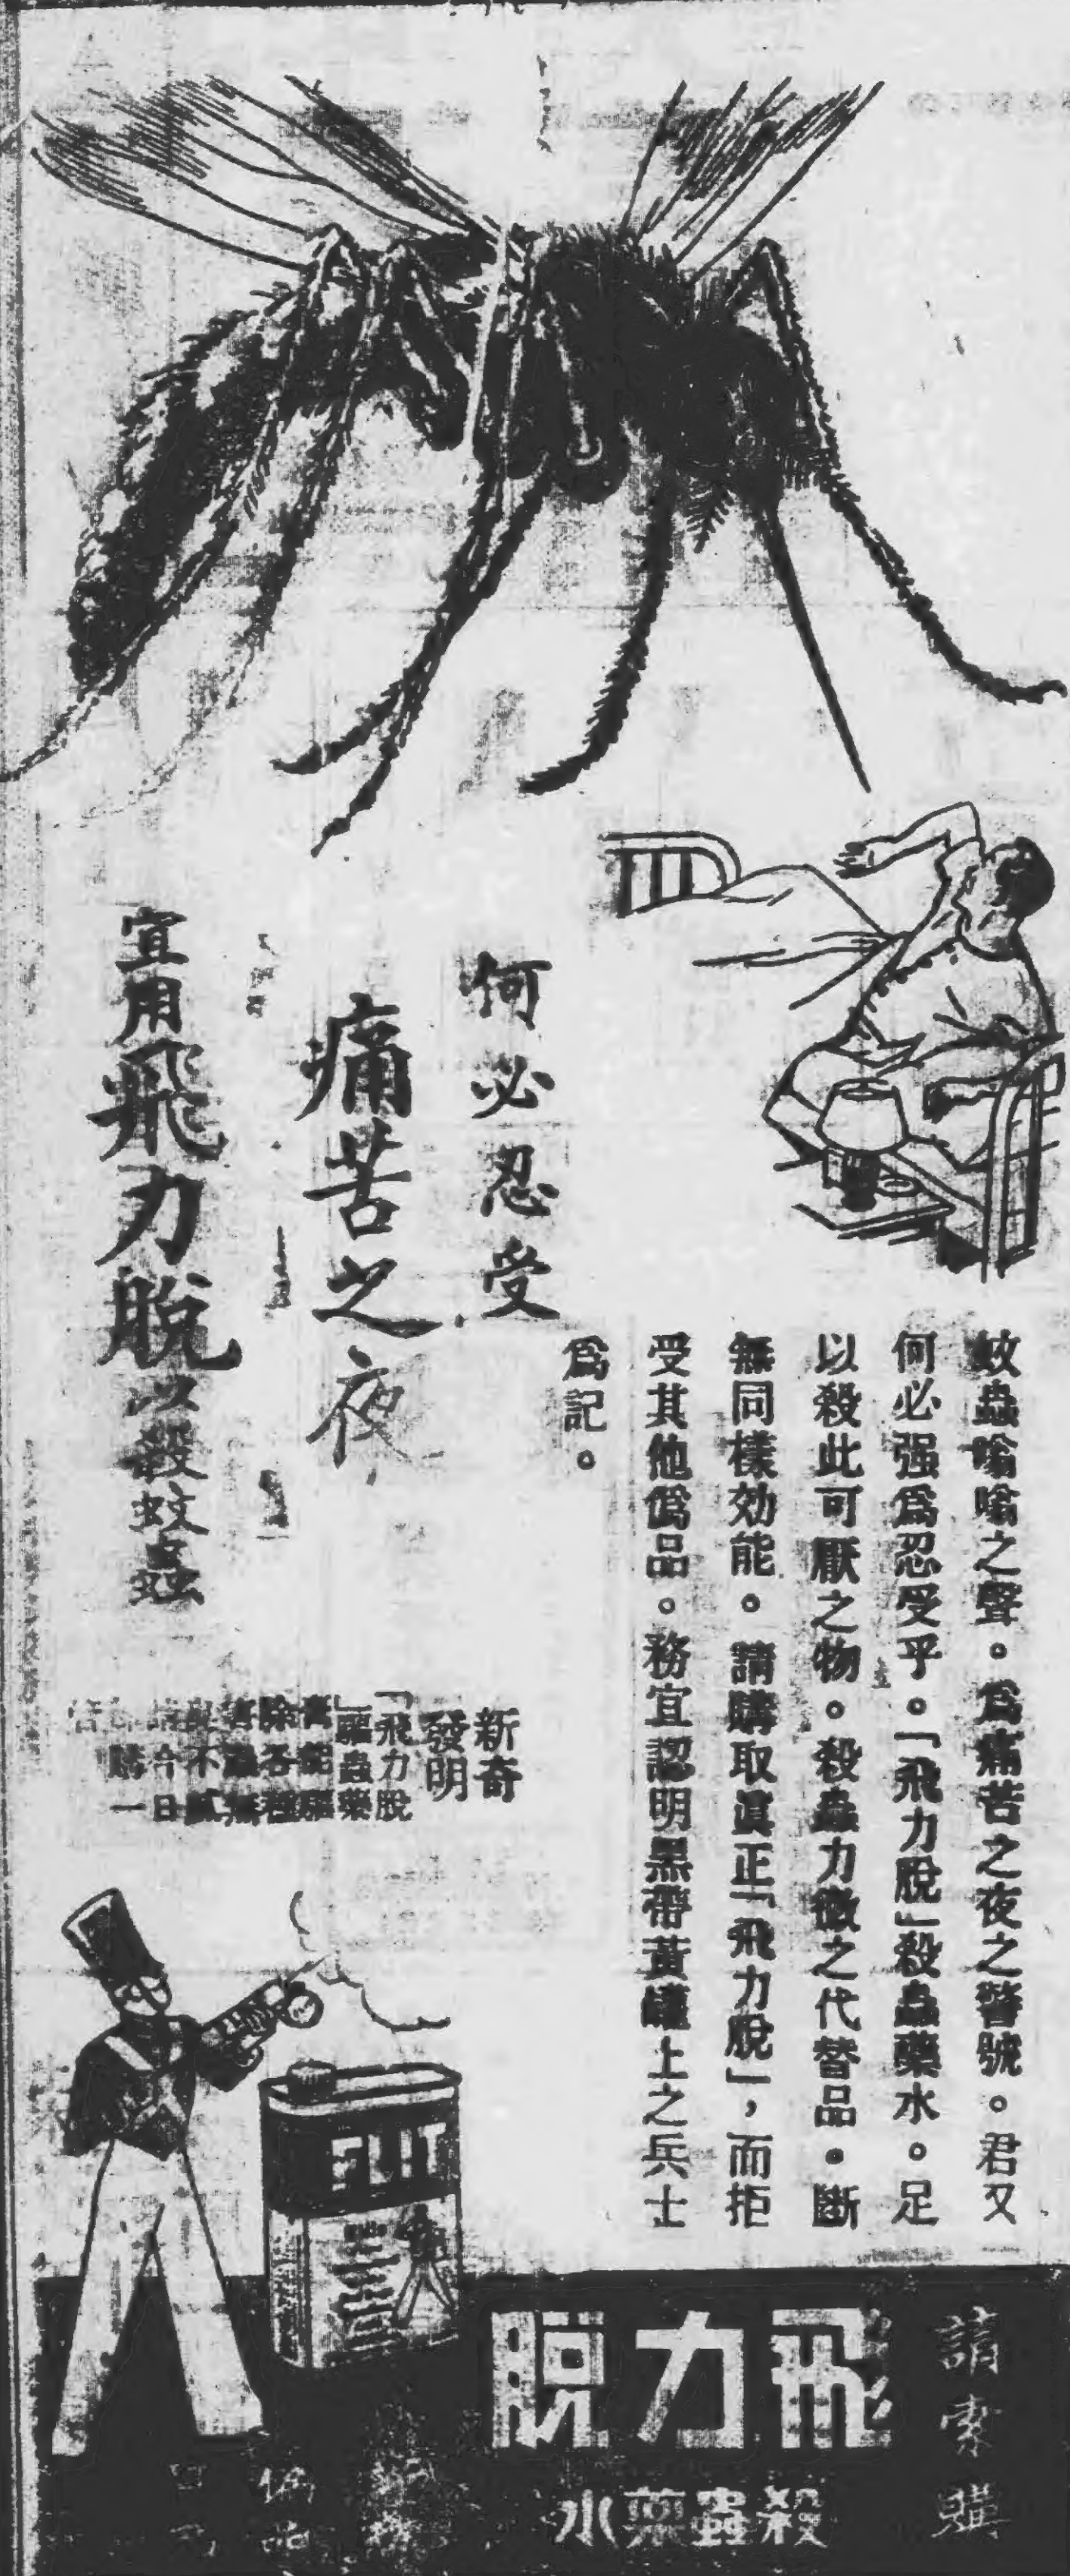 何必忍受
痛苦之夜
宜用飛力脫以殺蚊蟲
蚊蟲嗡嗡之聲。爲痛苦之夜之警號。君又
何必强爲忍受乎。「飛力脫」殺蟲藥水。足
以殺此可厭之物。殺蟲力微之代替品。斷
無同樣効能。請購取眞正「飛力脫」，而拒
受其他僞品。務宜認明黑帶黃罐上之兵士
爲記。
新奇
發明
「飛力脫
」驅蟲藥
除各種
今日
購一
FLIT
請索購
飛力脫
殺蟲藥水